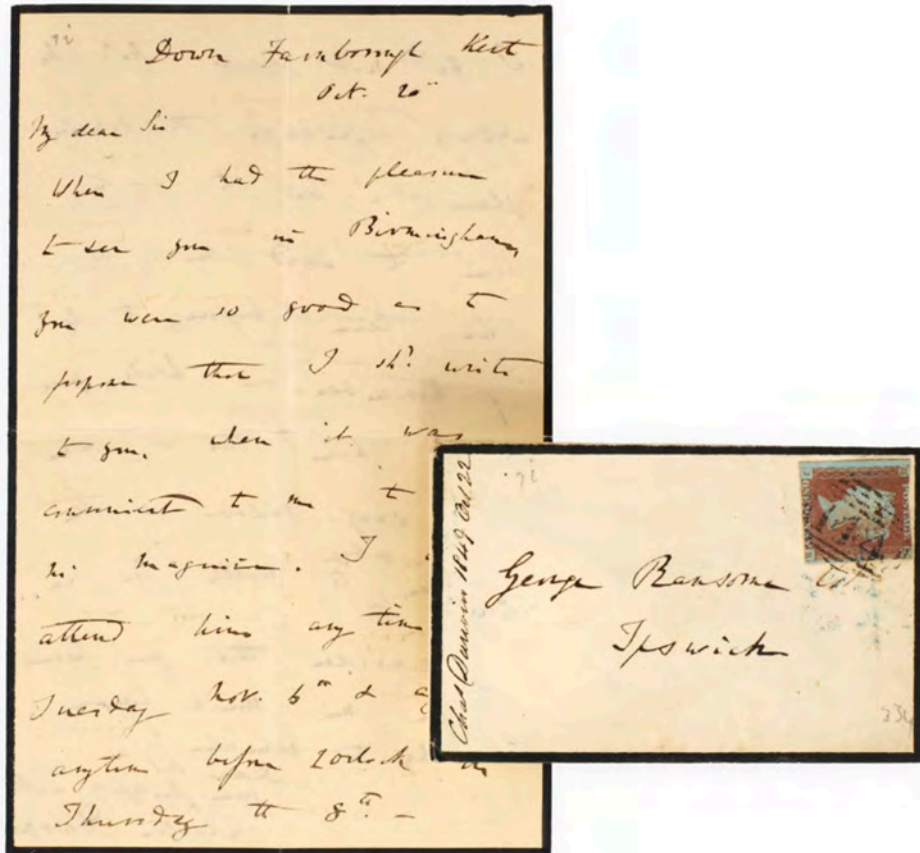 Down Farnborough Kent
Oct. 20th
My dear Sir
When I had the pleasure
to see you in Birmingham,
you were so good as to
propose that I shd. write
to you, when it was
convenient to me to
Mr Maguire. I
attend him any time
Tuesday Nov. 6th &
anytime before 2 oclock on
Thursday the 8th. —
Chas Darwin 1849 Oct. 22
George Ransome
Ipswich